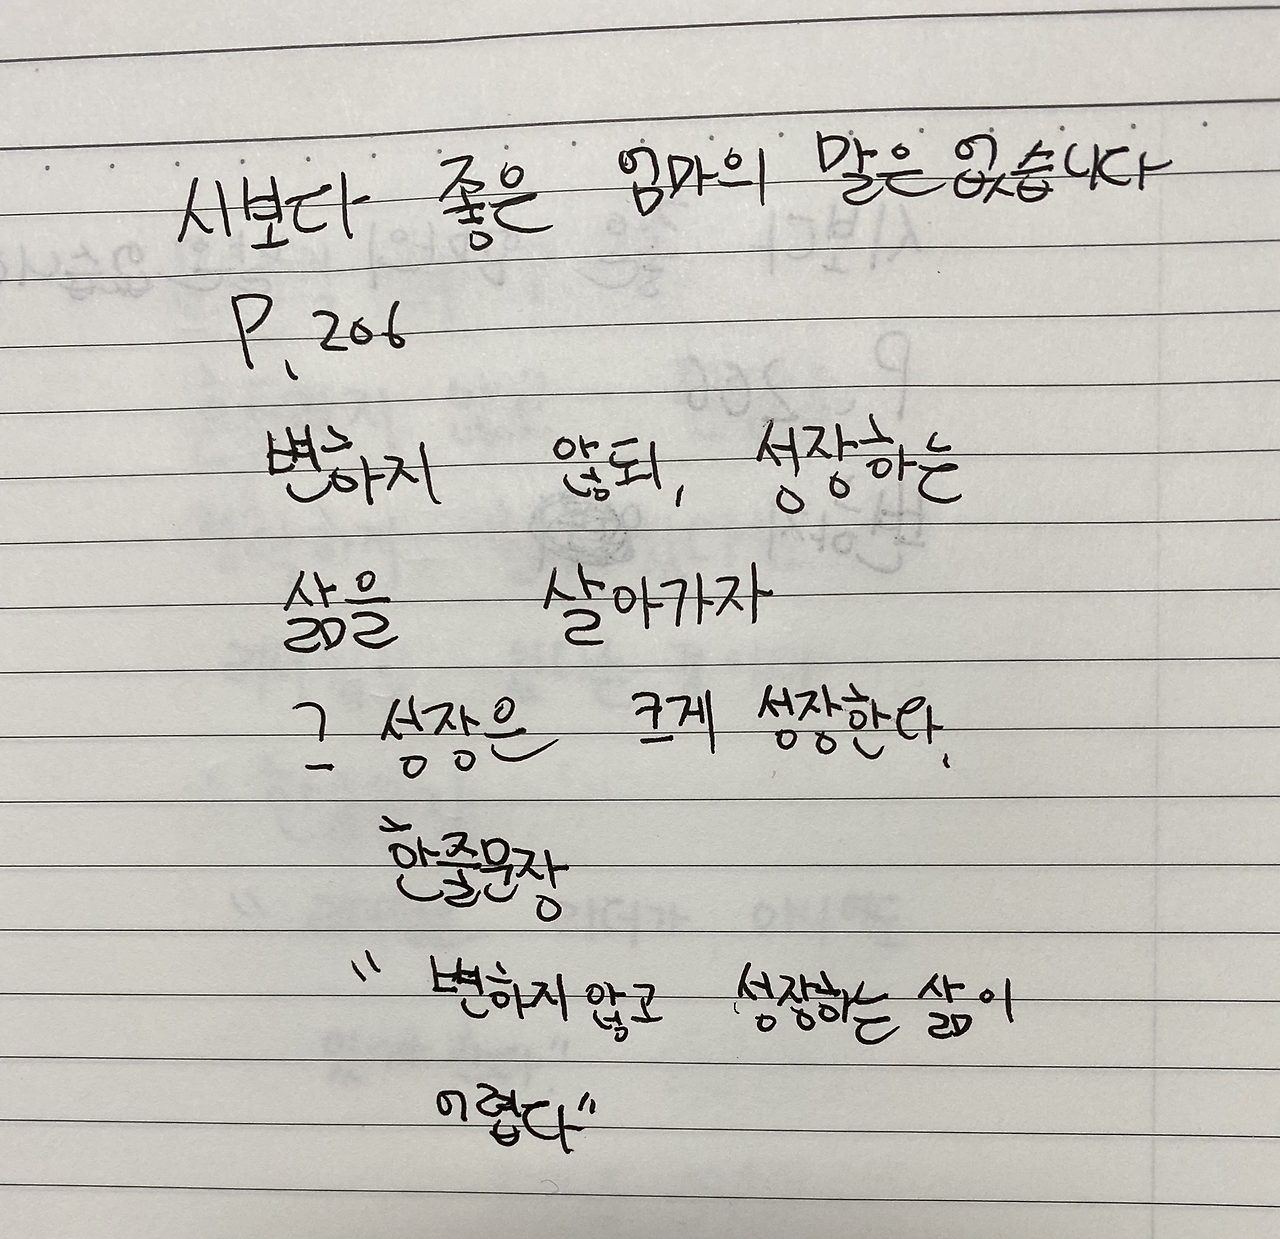 시보다 좋은 엄마의 말은 없습니다
P. 206
변하지 않되, 성장하는
삶을 살아가자
그 성장은 크게 성장한다.
한줄문장
" 변하지 않고 성장하는 삶이
어렵다"